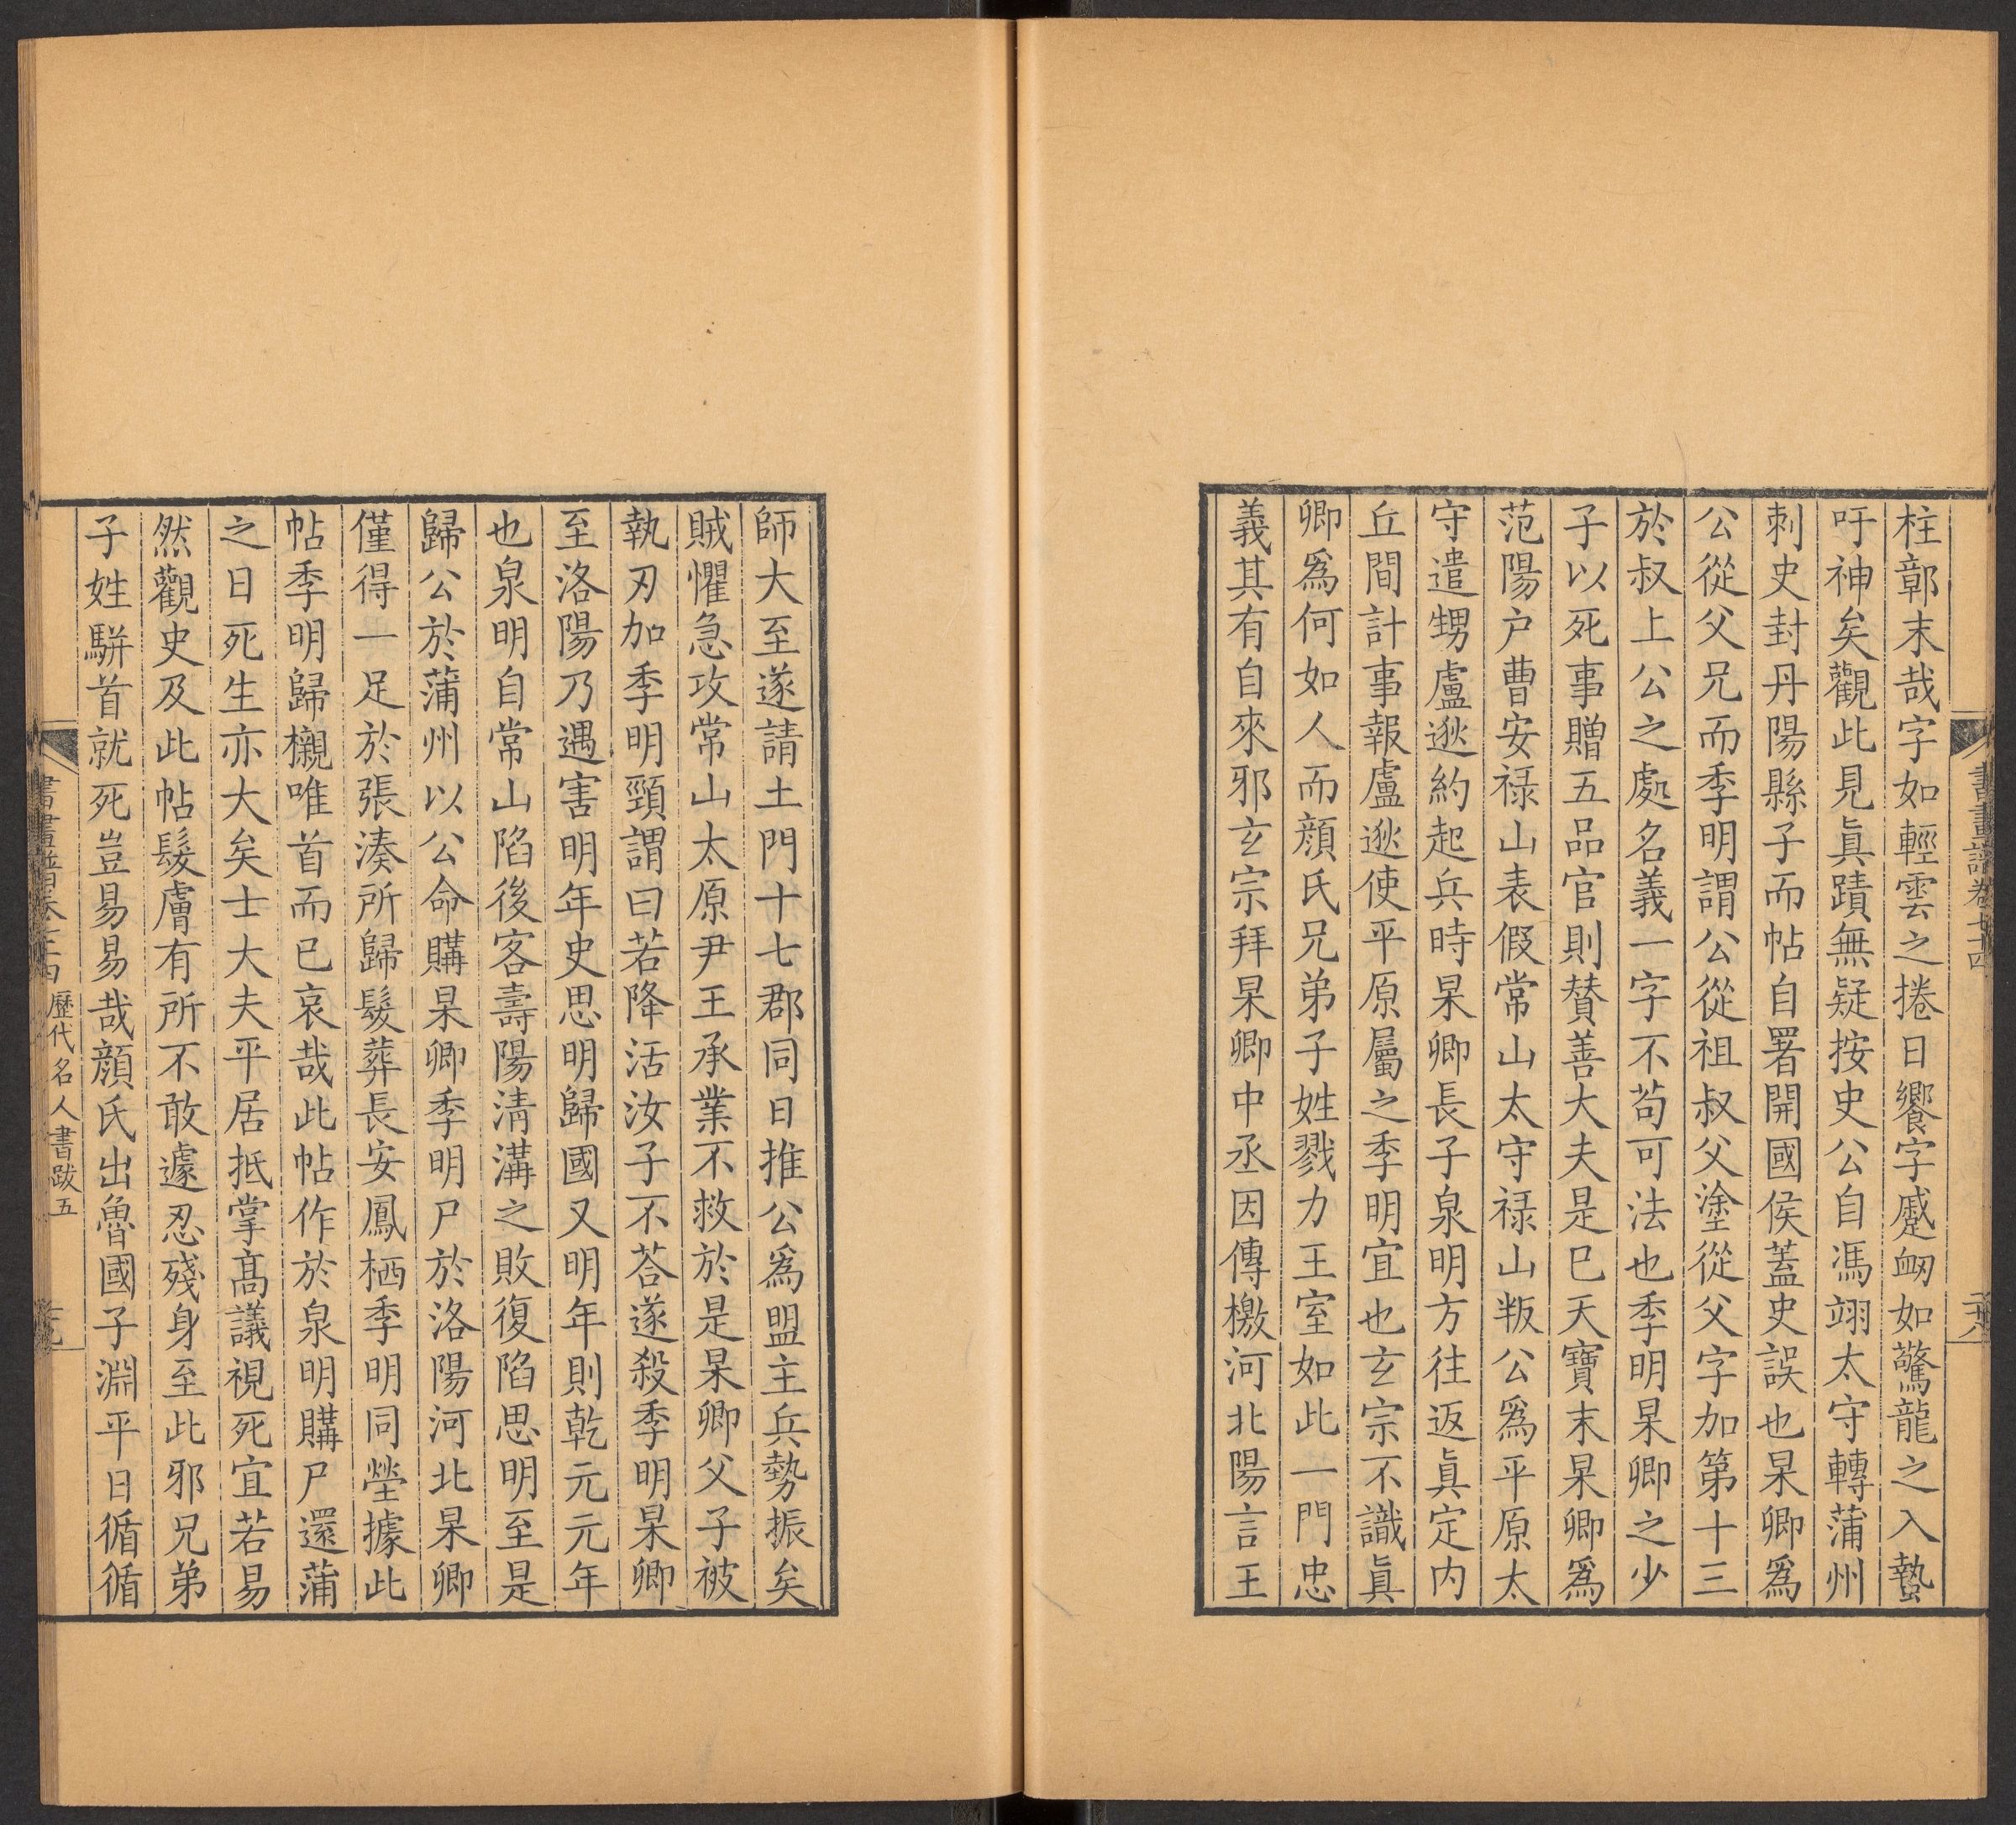 書畫譜卷七十四
二十八
柱鄣末哉字如輕雲之捲日饗字蹙衂如驚龍之入蟄
吁神矣觀此見眞蹟無疑按史公自馮翊太守轉蒲州
刺史封丹陽縣子而帖自署開國侯蓋史誤也杲卿爲
公從父兄而季明謂公從祖叔父塗從父字加第十三
於叔上公之處名義一字不茍可法也季明杲卿之少
子以死事贈五品官則賛善大夫是巳天寶末杲卿爲
范陽户曹安禄山表假常山太守禄山叛公爲平原太
守遣甥盧逖約起兵時杲卿長子泉明方往返眞定内
丘間計事報盧逖使平原屬之季明宜也玄宗不識眞
卿爲何如人而顔氏兄弟子姓戮力王室如此一門忠
義其有自來邪玄宗拜杲卿中丞因傳檄河北陽言王
師大至遂請土門十七郡同日推公爲盟主兵勢振矣
賊懼急攻常山太原尹王承業不救於是杲卿父子被
執刃加季明頸謂曰若降活汝子不荅遂殺季明杲卿
至洛陽乃遇害明年史思明歸國又明年則乾元元年
也泉明自常山陷後客壽陽清溝之敗復陷思明至是
歸公於蒲州以公命購杲卿季明尸於洛陽河北杲卿
僅得一足於張湊所歸髮葬長安鳳栖季明同塋據此
帖季明歸櫬唯首而巳哀哉此帖作於泉明購尸還蒲
之日死生亦大矣士大夫平居抵掌髙議視死宜若易
然觀史及此帖髮膚有所不敢遽忍殘身至此邪兄弟
子姓駢首就死豈易易哉顔氏出魯國子淵平日循循
書畫譜卷七十四
歷代名人書跋五
二十九